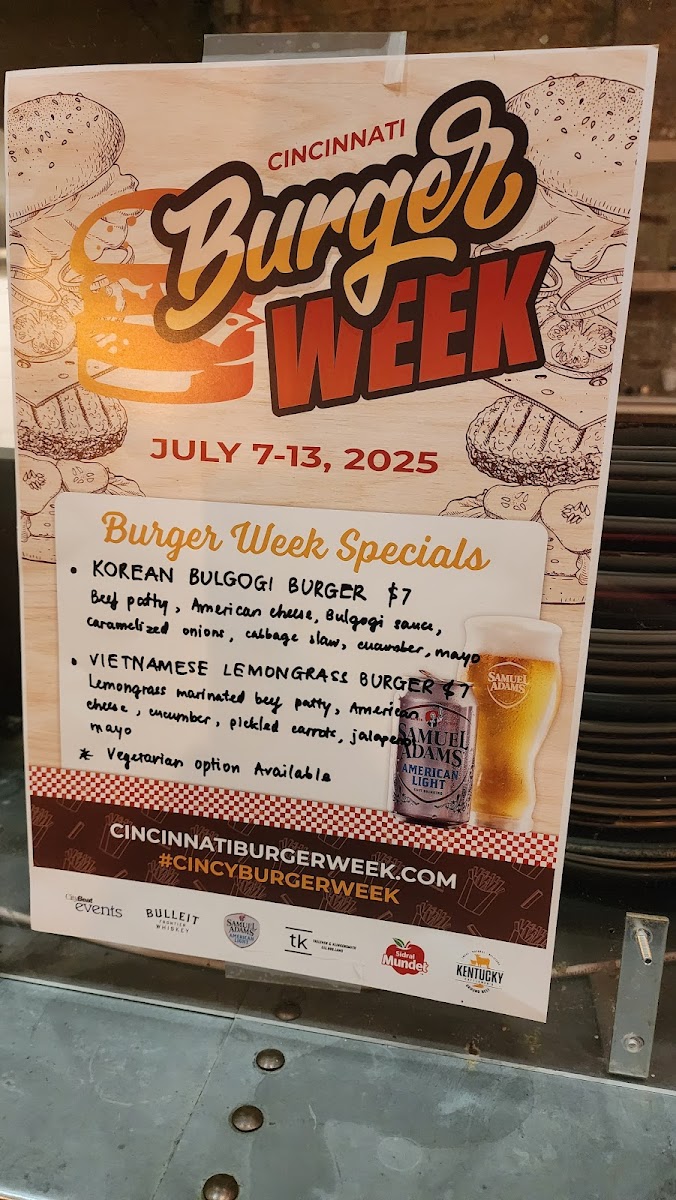 CINCINNATI
Burger
WEEK
JULY 7-13, 2025
Burger Week Specials
• KOREAN BULGOGI BURGER $7
Beef patty, American cheese, Bulgogi sauce,
caramelized onions, cabbage slaw, cucumber, mayo
• VIETNAMESE LEMONGRASS BURGER $7
Lemongrass marinated beef patty, American
cheese, cucumber, pickled carrots, jalapeno,
mayo
* Vegetarian option Available
SAMUEL
ADAMS
SAMUEL
ADAMS
AMERICAN
LIGHT
CINCINNATIBURGERWEEK.COM
#CINCYBURGERWEEK
CityBeat
events
BULLEIT
FRONTIER
WHISKEY
SAMUEL
ADAMS
AMERICAN
LIGHT
tk
Sidral
Mundet
KENTUCKY